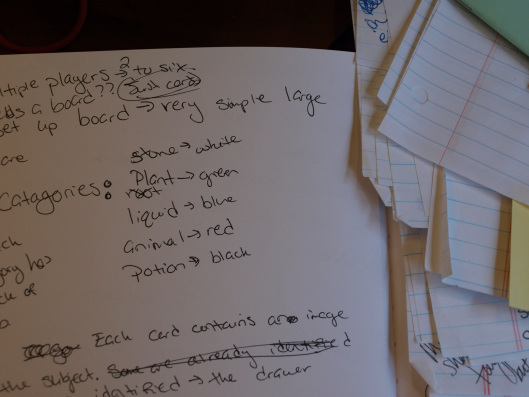 tiple players → 2 to six.
eds a board?? Just cards
set up board → very simple large
are
stone → white
Catagories:
Plant → green
root
liquid → blue
animal → red
Potion → black
ch
gory has
ck of
Each card contains an image
the subject. Some are already identified d
identified → the drawer